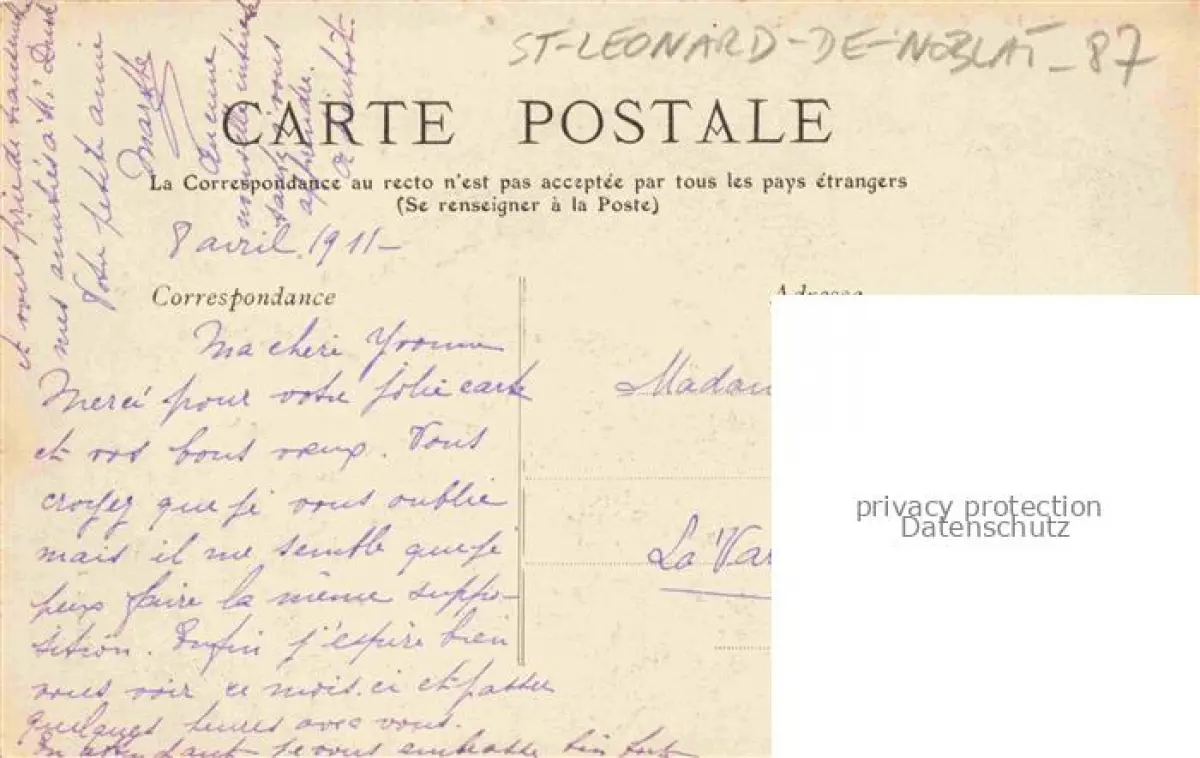 ST-LEONARD-DE-NOBLAT_87
CARTE POSTALE
La Correspondance au recto n'est pas acceptée par tous les pays étrangers
(Se renseigner à la Poste)
8 avril 1911-
Correspondance
Adresse
Ma cheri Yvonne
Merci pour votre jolie carte
et vos bons vœux. Vous
croyez que je vous oublie
mais il me semble que je
peux faire la même suppo-
sition. Enfin j'espère bien
vous voir ce mois.ci et passer
quelques heures avec vous.
En attendant je vous embrasse bien fort
et vous prie de transmettre
mes amitiés à M.
Votre petite amie
Marthe
Aucune
nouvelle
vous
apprendre.
à bientôt
Madam
La Var
privacy protection
Datenschutz